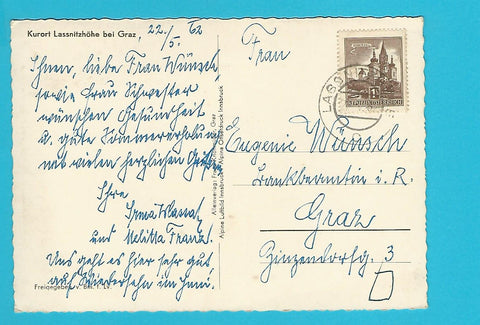 Kurort Lassnitzhöhe bei Graz,
22./5. 62
Ihnen, liebe Frau Wünsch,
sowie Frau Schwester
wünschen Gesundheit
u. gute Sommererholung
mit vielen herzlichen Grüßen
Ihre
Irma
und Melitta Franz.
Uns geht es hier sehr gut
auf Wiedersehn im Juni.
Freigegeben v.
Alleinverlag:
Alpine Luftbild Innsbruck - Alpine Innsbruck
REPUBLIK ÖSTERREICH
Frau
Eugenie Wünsch
Bankbeamtin i. R.
Graz
Zinzendorfg. 3